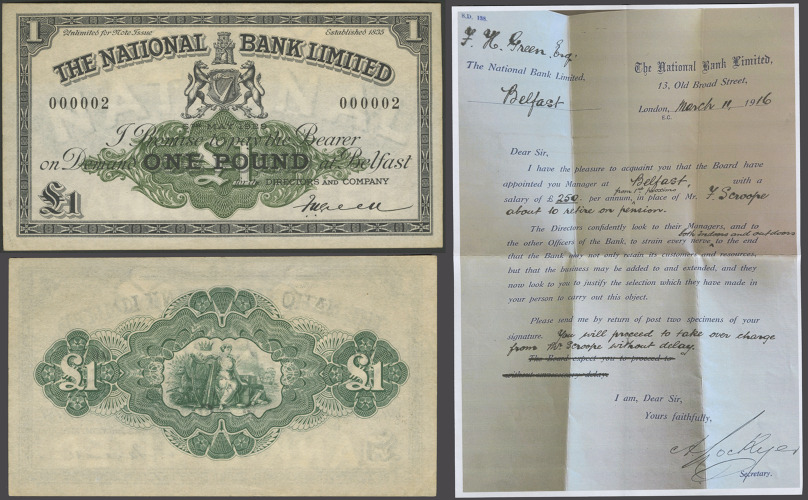 1
Unlimited for Note Issue
Established 1835
1
THE NATIONAL BANK LIMITED
000002
000002
6TH MAY 1929
I Promise to pay the Bearer
on Demand ONE POUND at Belfast
£1
for the DIRECTORS AND COMPANY
£1
£1
£1
S.D. 198.
F. H. Green, Esq.
The National Bank Limited,
Belfast
The National Bank Limited,
13, Old Broad Street,
London, March 11, 1916
E.C.
Dear Sir,
I have the pleasure to acquaint you that the Board have
appointed you Manager at Belfast, with a
from 1st proximo
salary of £ 250 per annum, in place of Mr. F. Scroope
about to retire on pension.
The Directors confidently look to their Managers, and to
both indoors and outdoors
the other Officers of the Bank, to strain every nerve to the end
that the Bank may not only retain its customers and resources,
but that the business may be added to and extended, and they
now look to you to justify the selection which they have made in
your person to carry out this object.
Please send me by return of post two specimens of your
signature. You will proceed to take over charge
from Mr Scroope without delay.
The Board expect you to proceed to
without unnecessary delay.
I am, Dear Sir,
Yours faithfully,
A Lockyer
Secretary.